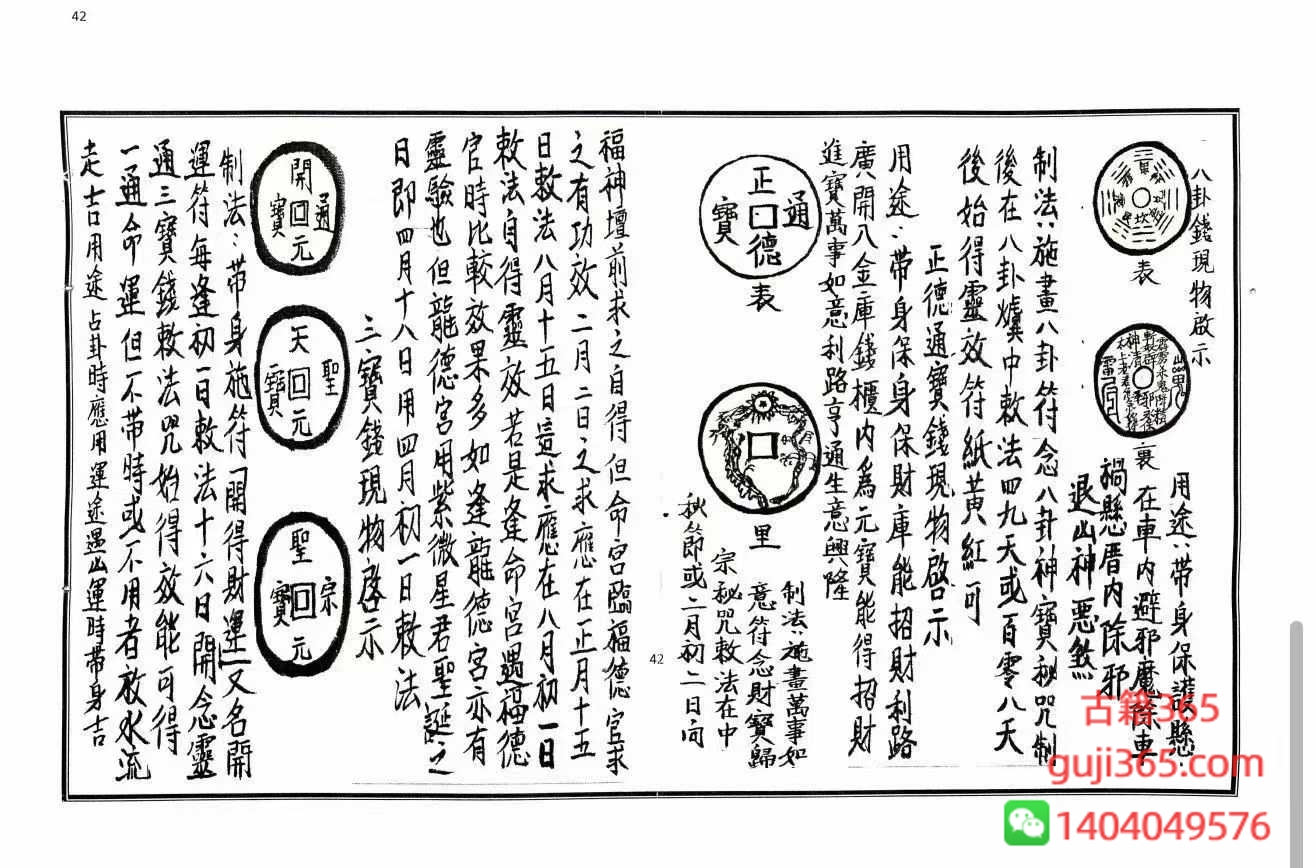 42
八卦錢現物啟示
表
裏
用途:帶身保護懸
在車內避邪魔除車
禍懸厝內除邪
退凶神惡煞
制法:施畫八卦符念八卦神寶秘咒制
後在八卦爐中敕法四九天或百零八天
後始得靈效符紙黃紅可
正德通寶錢現物啟示
用途:帶身保身保財庫能招財利路
廣開八金庫錢櫃內為元寶能得招財
進寶萬事如意利路亨通生意興隆
正德通寶
表
里
制法:施畫萬事如
意符念財寶歸
宗秘咒敕法在中
秋節或二月初二日向
42
福神壇前求之自得但命宮臨福德官求
之有功效二月二日之求應在正月十五
日敕法八月十五日這求應在八月初一日
敕法自得靈效若是逢命宮遇福德
官時比較效果多如逢龍德宮亦有
靈驗也但龍德宮用紫微星君聖誕之
日即四月十八日用四月初一日敕法
三寶錢現物啓示
開元通寶
天元聖寶
聖元宗寶
制法:帶身施符「開得財運」又名開
運符每逢初一日敕法十六日開念靈
通三寶錢敕法咒始得效能可得
一通命運但不帶時或不用者放水流
走吉用途占卦時應用運途遇凶運時帶身吉
古籍365
guji365.com
1404049576